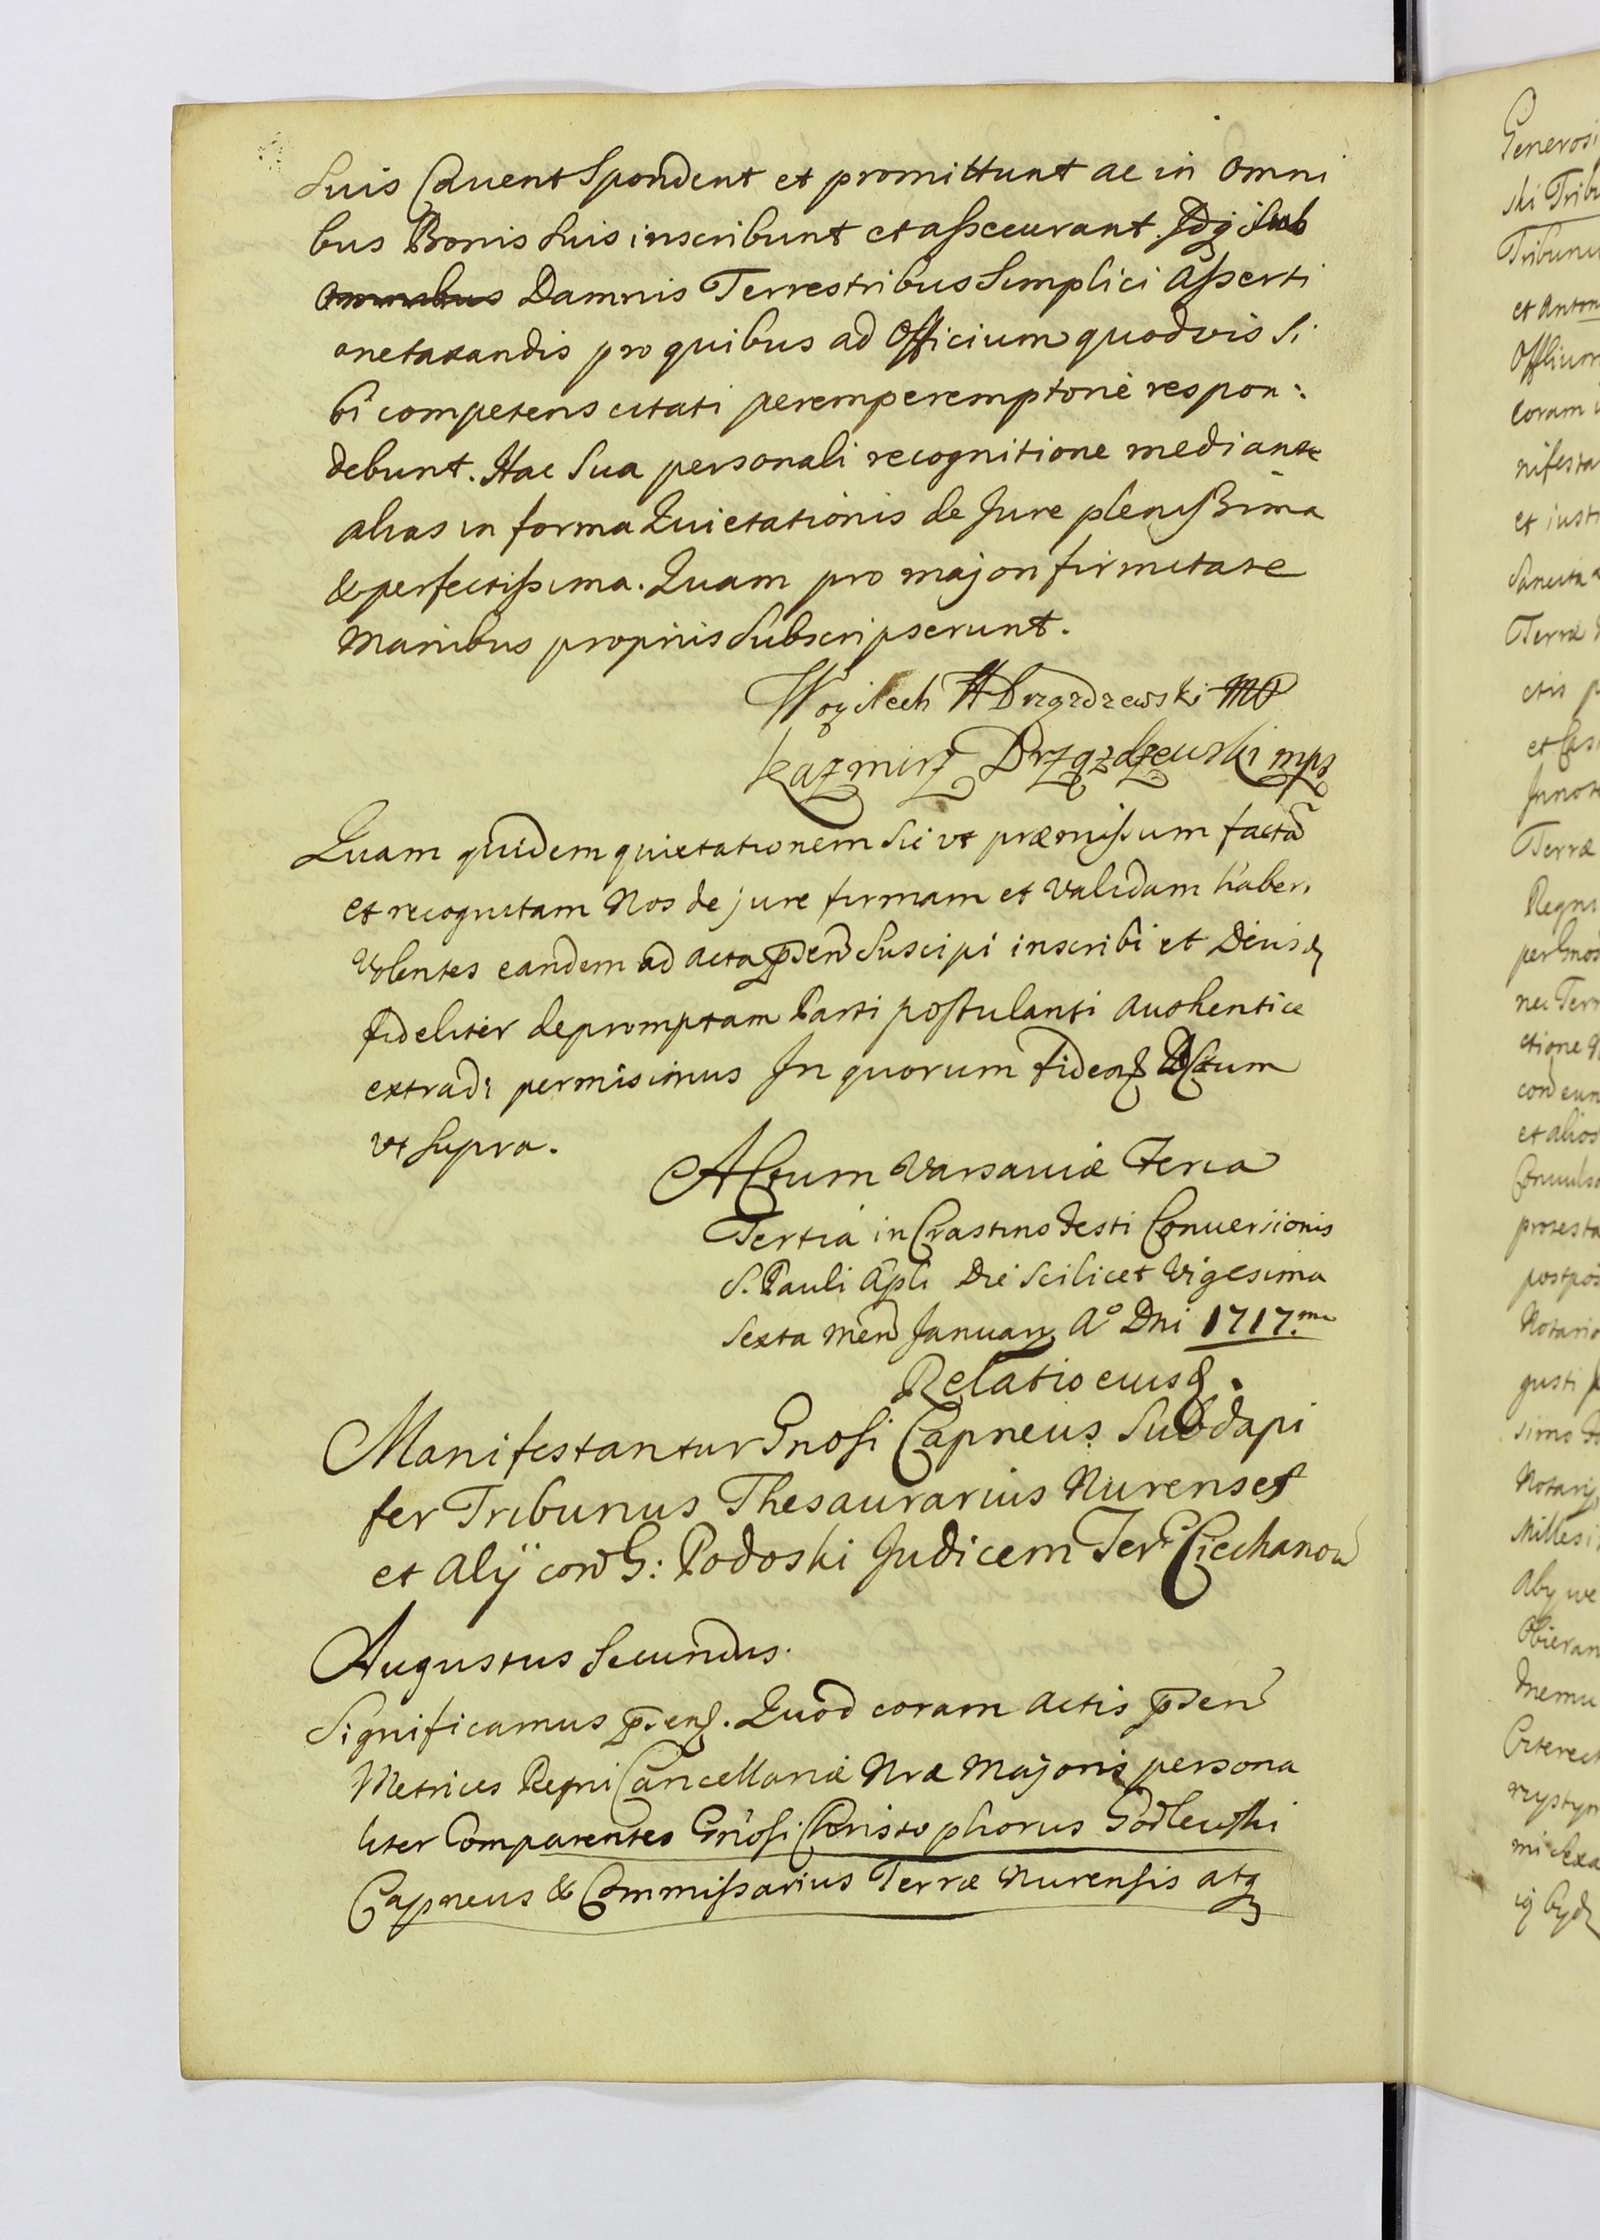 Suis Cavent Spondent et promittunt ac in Omni
bus Bonis Suis inscribunt et assecurant. Idq Sub
Omnibus Damnis Terrestribus Simplici Asserti
one taxandis pro quibus ad Officium quodvis Si
bi competens citati peremperemptorie respon:
debunt. Hac Sua personali recognitione mediante
alias in forma Quietationis de Jure plenissima
& perfectissima. Quam pro majori firmitate
Manibus proprijs Subscripserunt.
Woyciech Drzązdzewski MP
Kazmirz Drzązdzewski mpp
Quam quidem quietationem Sic vt præmissum factã
et recognitam Nos de jure firmam et validam haberi
Volentes eandem ad acta pñden Suscipi inscribi et
fideliter depromptam Parti postulanti Authentice
extradi permisimus In quorum fidem Actum
vt Supra.
Actum Varsaviæ Feria
Tertia in Crastino Festi Conversionis
S. Pauli Apli Die Scilicet Vigesima
Sexta Men Januarij Aº Dni 1717.mo
Relatio eius.
Manifestantur Gnosi Capneus Subdapi
fer Tribunus Thesaurarius Nurenses
et Alij con G: Podoski Judicem Terr Ciechanow
Augustus Secundus.
Significamus Quod coram Actis
Metrices Regni Cancellariæ Nræ Majoris persona
liter Comparentes Gnosi Christophorus Godlewski
Capneus & Commissarius Terræ Nurensis atq
Generosi
ski Tribu
Tribunu
et Anton
Officium
coram
nifesta
et iusti
Terræ
ctis p
Terræ
Regni
nei Terr
ctione q
con eun
et alios
protesta
Notario
gusti
simo
Notarij
Millesi
Aby we